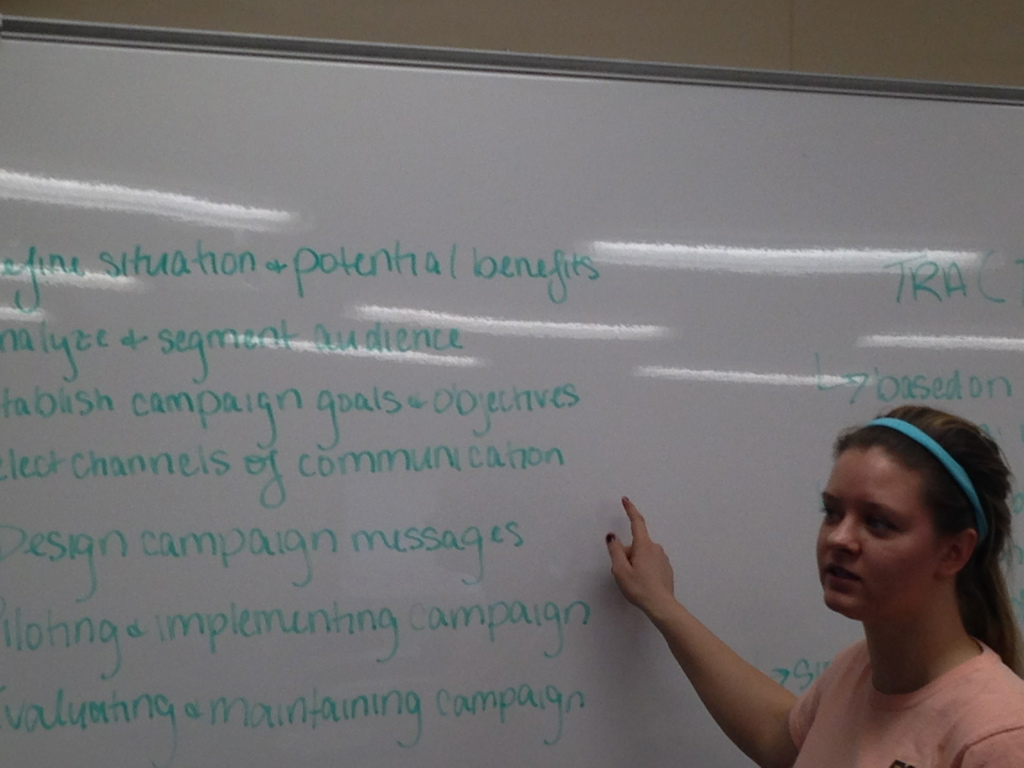 efine situation & potential benefits
nalyze & segment audience
tablish campaign goals & objectives
elect channels of communication
Design campaign messages
Piloting & implementing campaign
Evaluating & maintaining campaign
TRACT
↳ based on